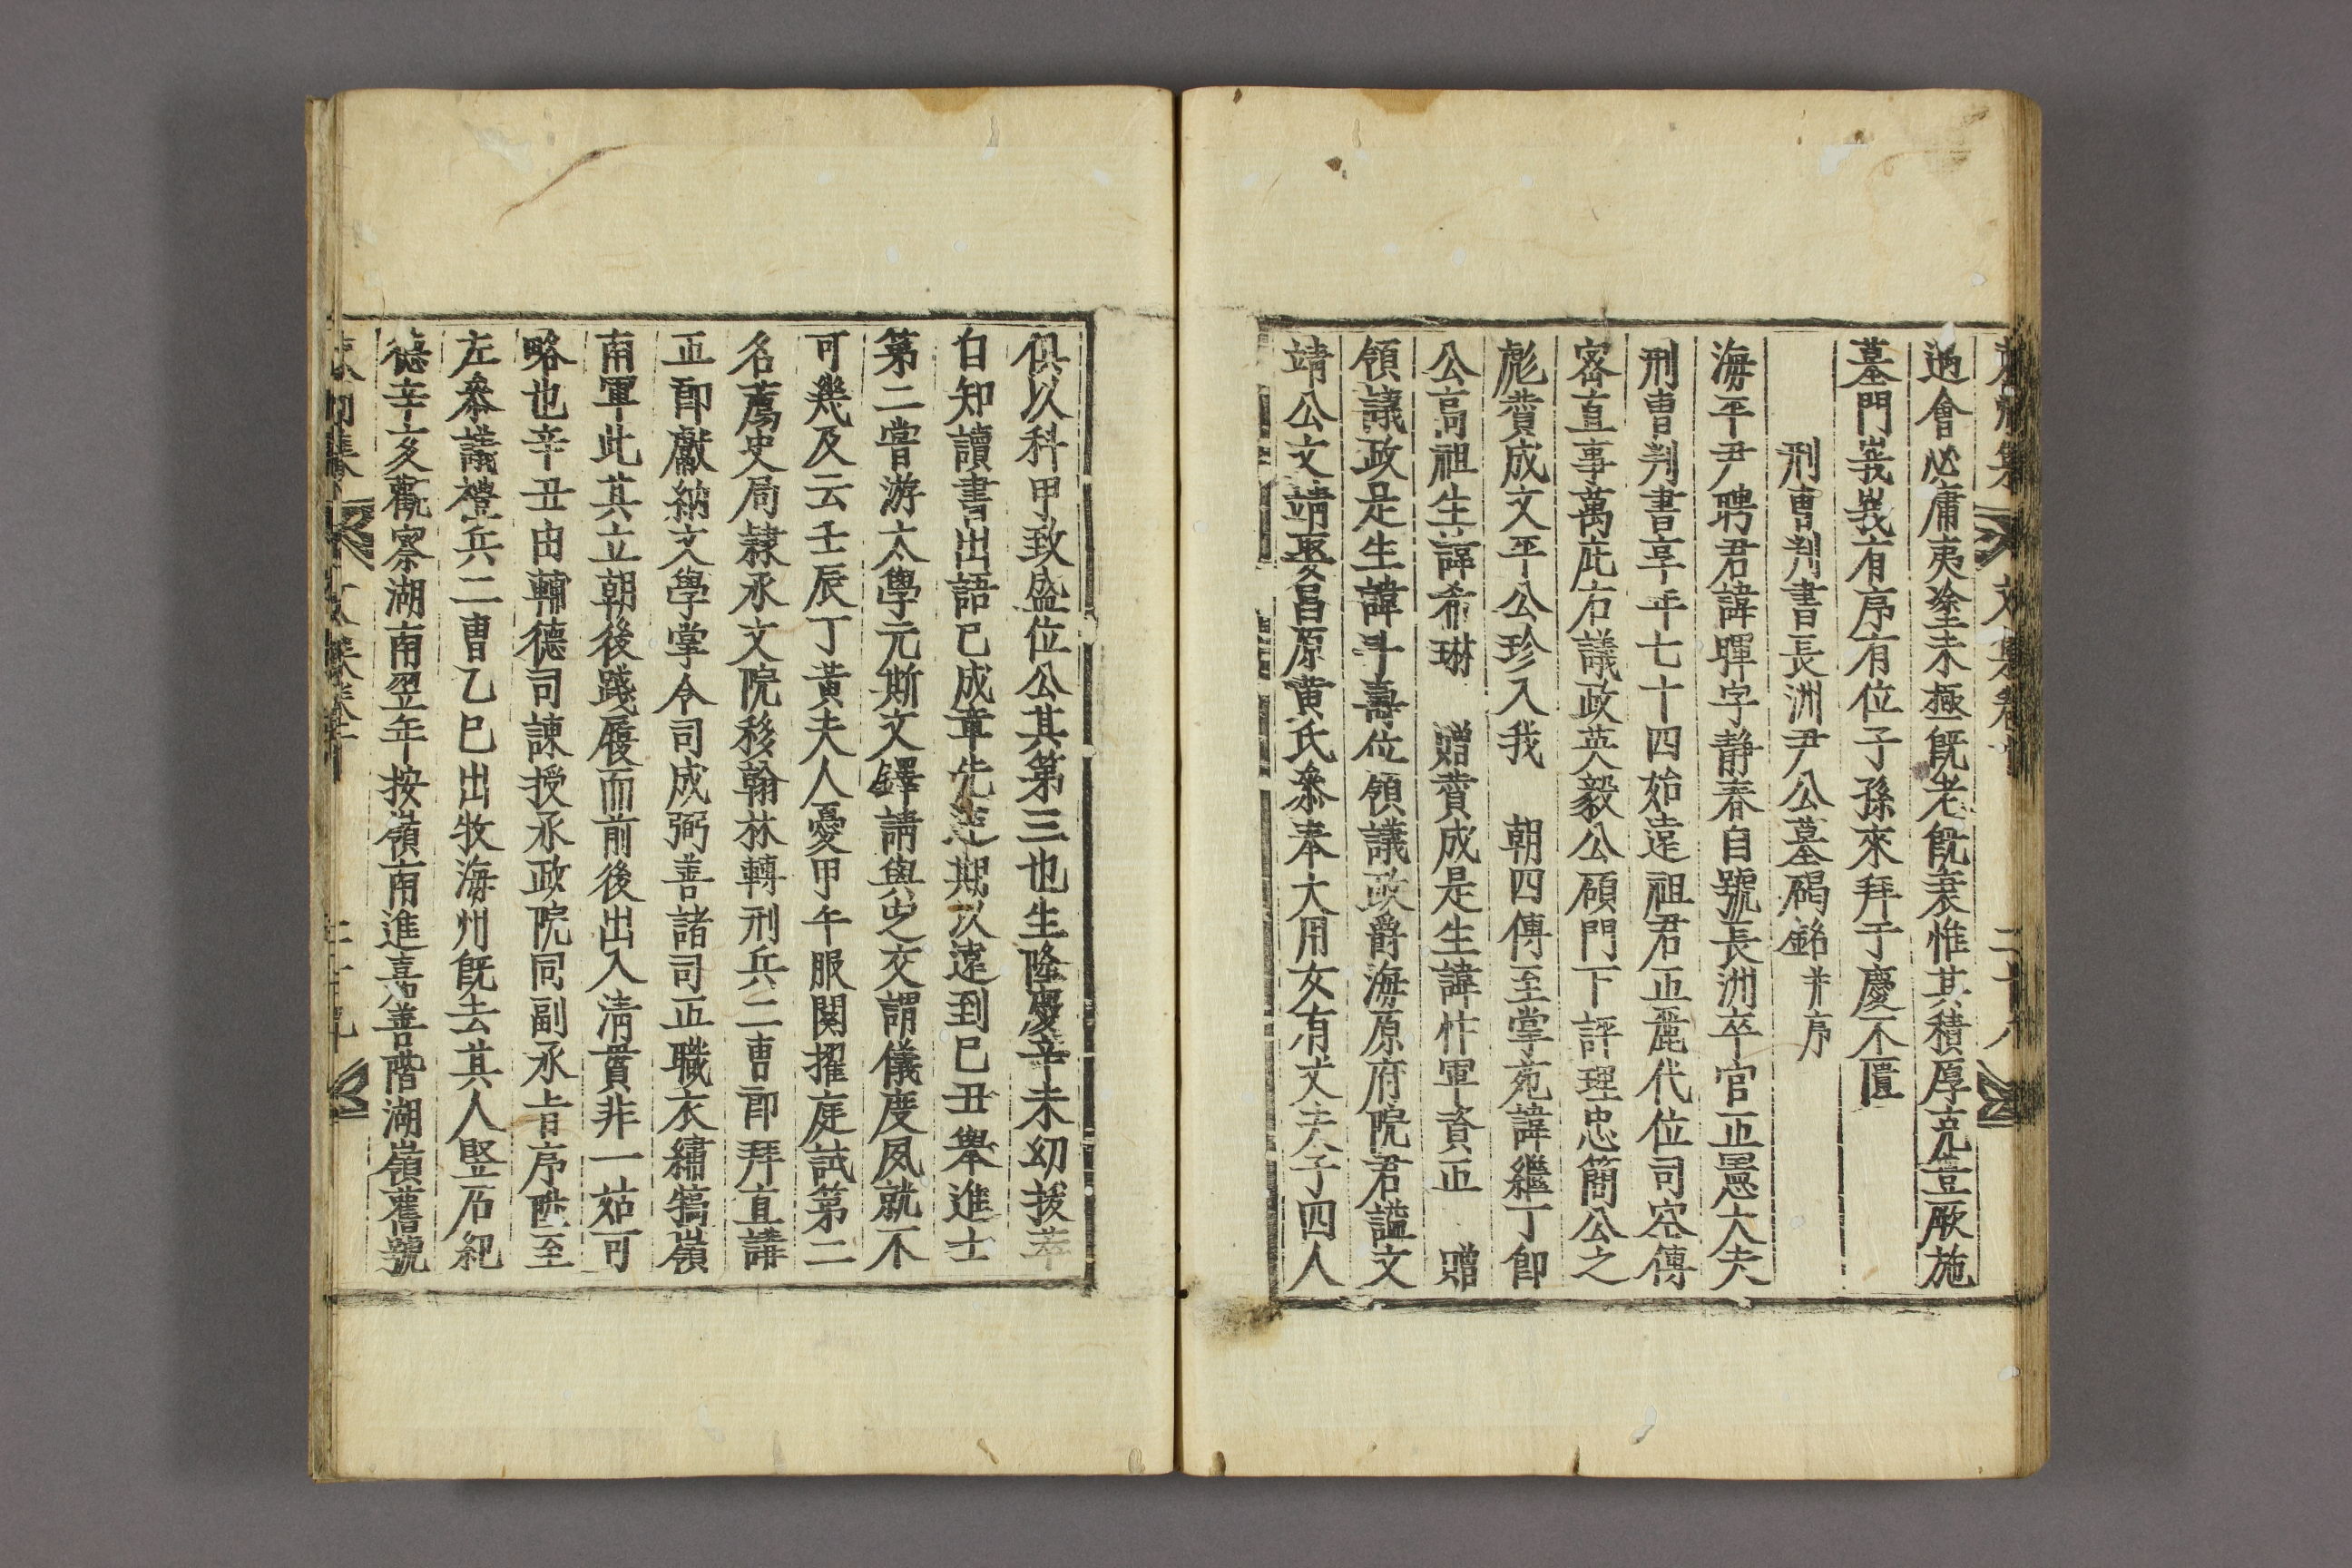 適會必庸夷塗未極旣老旣衰惟其積厚克豊厥施
墓門峩峩有序有位子孫來拜于慶不匱
刑曹判書長洲尹公墓碣銘 幷序
海平尹聘君諱暉字靜春自號長洲卒官正憲大夫
刑曹判書享年七十四始遠祖君正麗代位司空傳
密直事萬庇右議政英毅公碩門下評理忠簡公之
彪贊成文平公珍入我 朝四傳至掌苑諱繼丁卽
公高祖生諱希琳 贈贊成是生諱忭軍資正 贈
領議政是生諱斗壽位領議政爵海原府院君謚文
靖公文靖娶昌原黃氏叅奉大用女有丈夫子四人
俱以科甲致盛位公其第三也生隆慶辛未幼拔萃
自知讀書出語已成章先達期以遠到己丑擧進士
第二嘗游太學元斯文鐸請與之交謂儀度夙就不
可幾及云壬辰丁黃夫人憂甲午服闋擢庭試第二
名薦史局隷承文院移翰林轉刑兵二曹郎拜直講
正郎獻納文學掌令司成弼善諸司正職衣繡犒嶺
南軍此其立朝後踐履而前後出入淸貫非一姑可
略也辛丑由輔德司諫授承政院同副承旨序陞至
左叅議禮兵二曹乙巳出牧海州旣去其人竪石紀
德辛亥觀察湖南翌年按嶺南進嘉善階湖嶺舊號